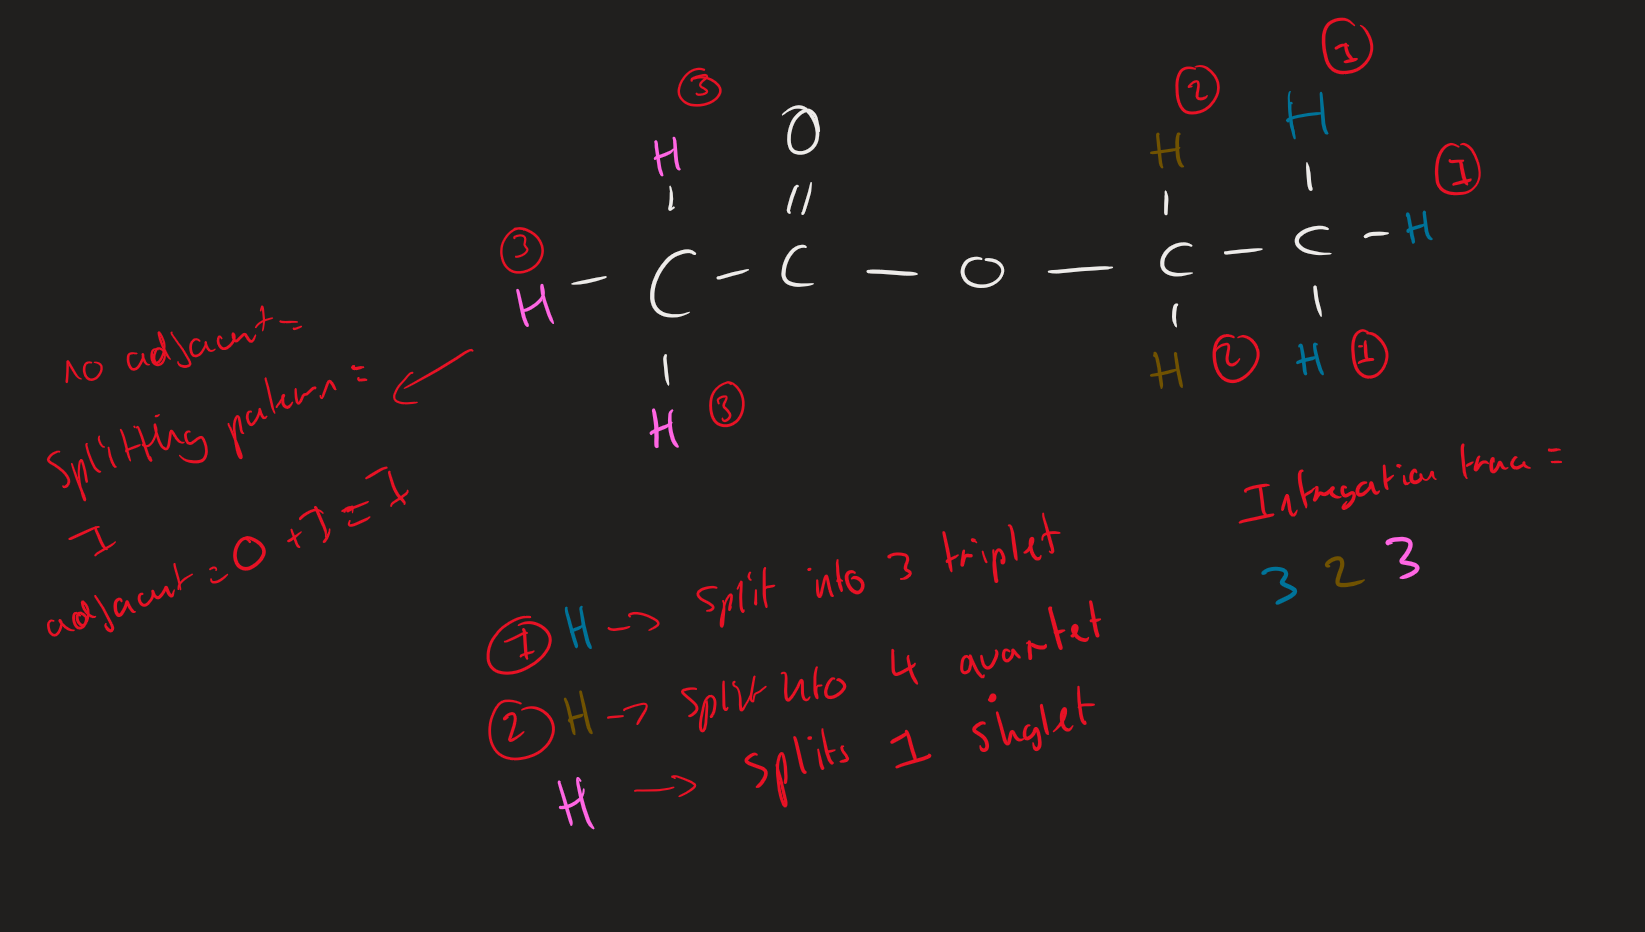 1
3
2
H
O
H
H
1
H
3
H
C
C
O
C
C
H
H
3
H
2
H
1
H
3
no adjacent =
splitting pattern =
1
adjacent = 0 + 1 = 1
Intregation trace =
3 2 3
1 H -> split into 3 triplet
2 H -> split into 4 quartet
H -> splits 1 singlet